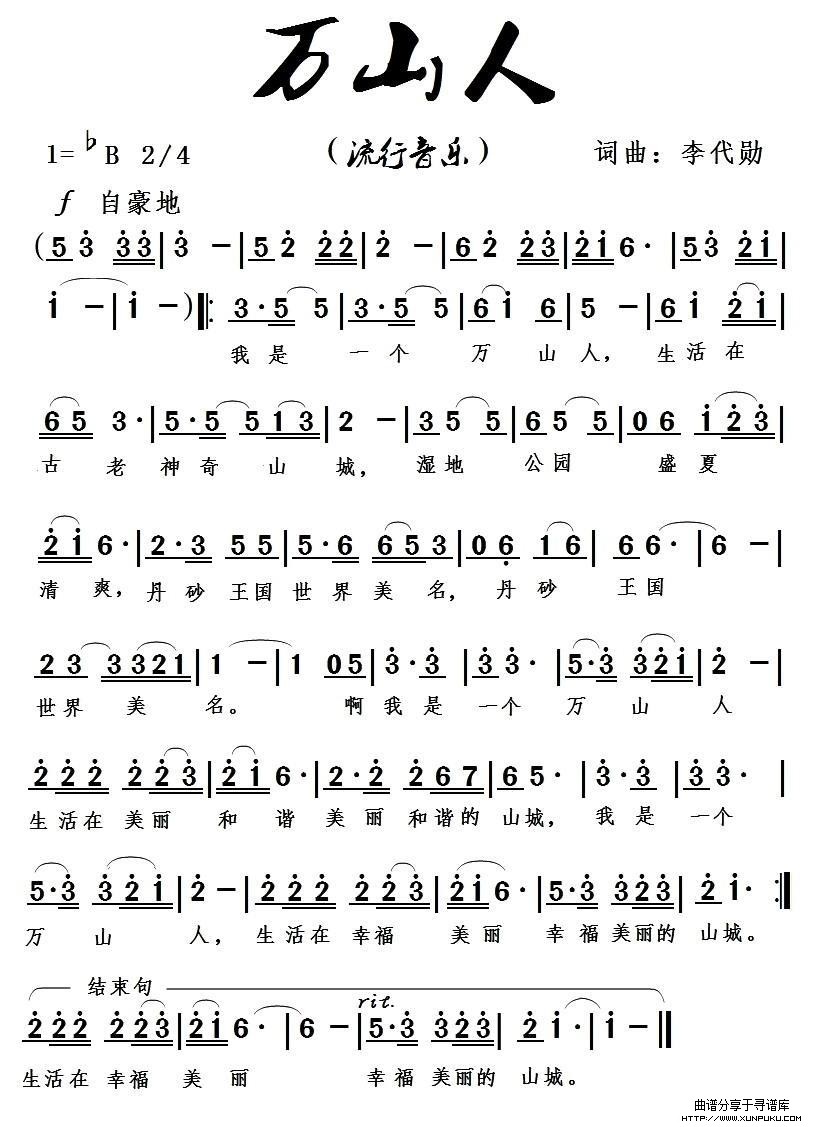 万山人
1=♭B 2/4 (流行音乐) 词曲：李代勋
f 自豪地
(5 3 3 3|3 -|5 2 2 2|2 -|6 2 2 3|2 1 6·|5 3 2 1|
1 -|1 -)‖: 3·5 5|3·5 5|6 1 6|5 -|6 1 2 1|
我是 一个 万山人， 生活在
6 5 3·|5·5 5 1 3|2 -|3 5 5|6 5 5|0 6 1 2 3|
古老神奇山城， 湿地 公园 盛夏
2 1 6·|2·3 5 5|5·6 6 5 3|0 6 1 6|6 6·|6 -|
清爽，丹砂王国世界美名，丹砂 王国
2 3 3 3 2 1|1 -|1 0 5|3·3|3 3·|5·3 3 2 1|2 -|
世界 美 名。 啊我是一个 万山 人
2 2 2 2 2 3|2 1 6·|2·2 2 6 7|6 5·|3·3|3 3·|
生活在美丽 和谐美丽和谐的山城，我是一个
5·3 3 2 1|2 -|2 2 2 2 2 3|2 1 6·|5·3 3 2 3|2 1· :‖
万山 人，生活在幸福 美丽 幸福美丽的山城。
结束句 rit.
2 2 2 2 2 3|2 1 6·|6 -|5·3 3 2 3|2 1·|1 -‖
生活在幸福 美丽 幸福美丽的山城。
曲谱分享于寻谱库
HTTP://WWW.XUNPUKU.COM